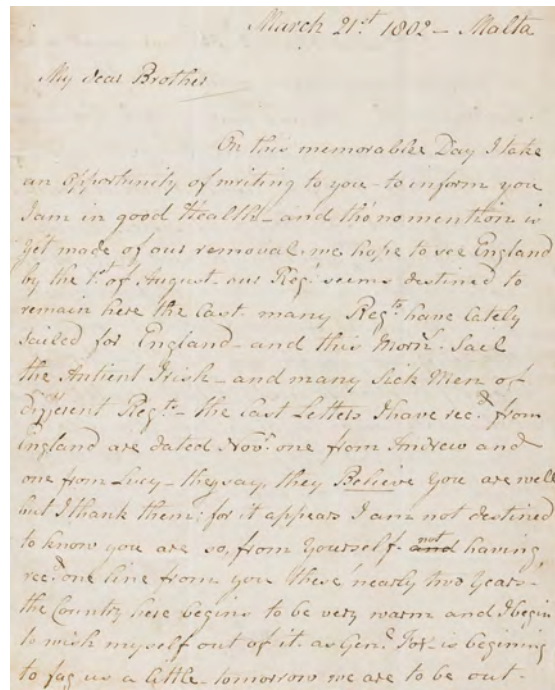 March 21st 1802 - Malta
My dear Brother
On this memorable Day I take
an Opportunity of writing to you - to inform you
I am in good Health - and tho' no mention is
yet made of our removal, we hope to see England
by the 1st of August - our Regt seems destined to
remain here the Last. many Regts have lately
sailed for England - and this Morng. Sail
the Antient Irish - and many Sick Men of
different Regts - the Last Letters I have recd from
England are dated Novr one from Andrew and
one from Lucy - they say, they Believe you are well
but I thank them; for it appears I am not destined
to know you are so, from Yourself - and not having
recd one line from you these nearly two Years -
the Country here begins to be very warm and I begin
to wish myself out of it. as Genl Fox is begining
to fag us a little - tomorrow we are to be out -